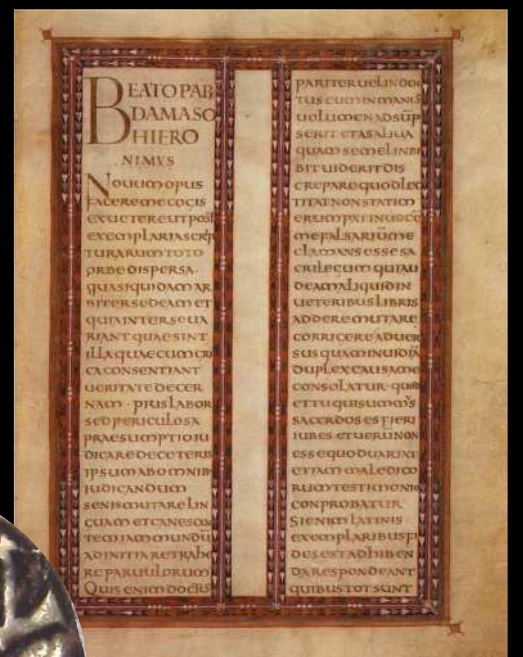 BEATO PAP
DAMASO
HIERO
NIMVS
Nouum opus
facere me cogis
ex uetere ut post
exemplaria scrip
turarum toto
orbe dispersa.
quasi quidam ar
biter sedeam et
quia inter se ua
riant quae sint
illa quae cum gre
ca consentiant
ueritate decer
nam · pius labor
sed periculosa
praesumptio iu
dicare de ceteris
ipsum ab omnib
iudicandum
senis mutare lin
guam et canescen
tem iam mundū
ad initia retrahe
re paruulorum
Quis enim doctus
pariter uel indoc
tus cum in manus
uolumen adsūp
serit et a saliua
quam semel inbi
bit uiderit dis
crepare quod lec
titat non statim
erumpat in uoce
me falsarium me
clamans esse sa
crilegum qui au
deam aliquid in
ueteribus libris
addere mutare
corrigere aduer
sus quam inuidiā
duplex causa me
consolatur · quod
et tu qui summus
sacerdos es fieri
iubes · et uerum non
esse quod uariat
etiam maledico
rum testimonio
conprobatur
Si enim latinis
exemplaribus fi
des est adhiben
da respondeant
quibus tot sunt